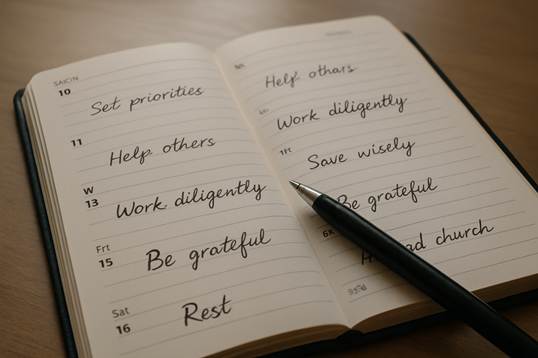 10
Set priorities
11
Help others
W
13
Work diligently
Frt
15
Be grateful
Sat
16
Rest
Help othars
Work diligently
Save wisely
Be grateful
church